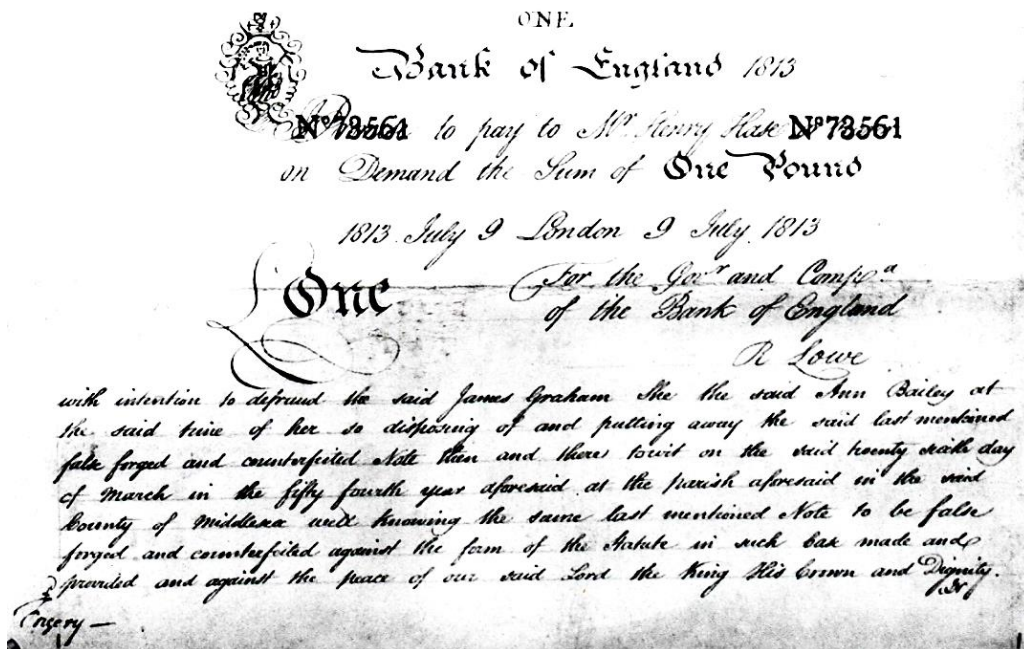 ONE
Bank of England 1813
Nº 73561 to pay to Mr. Henry Hase Nº 73561
on Demand the Sum of One Pound
1813 July 9 London 9 July 1813
One
For the Govr and Compa
of the Bank of England
R Lowe
with intention to defraud the said James Graham She the said Ann Bailey at
the said time of her so disposing of and putting away the said last mentioned
false forged and counterfeited Note then and there towit on the said twenty sixth day
of March in the fifty fourth year aforesaid at the parish aforesaid in the said
County of Middlesex well knowing the same last mentioned Note to be false
forged and counterfeited against the form of the Statute in such Case made and
provided and against the peace of our said Lord the King His Crown and Dignity.
Forgery —